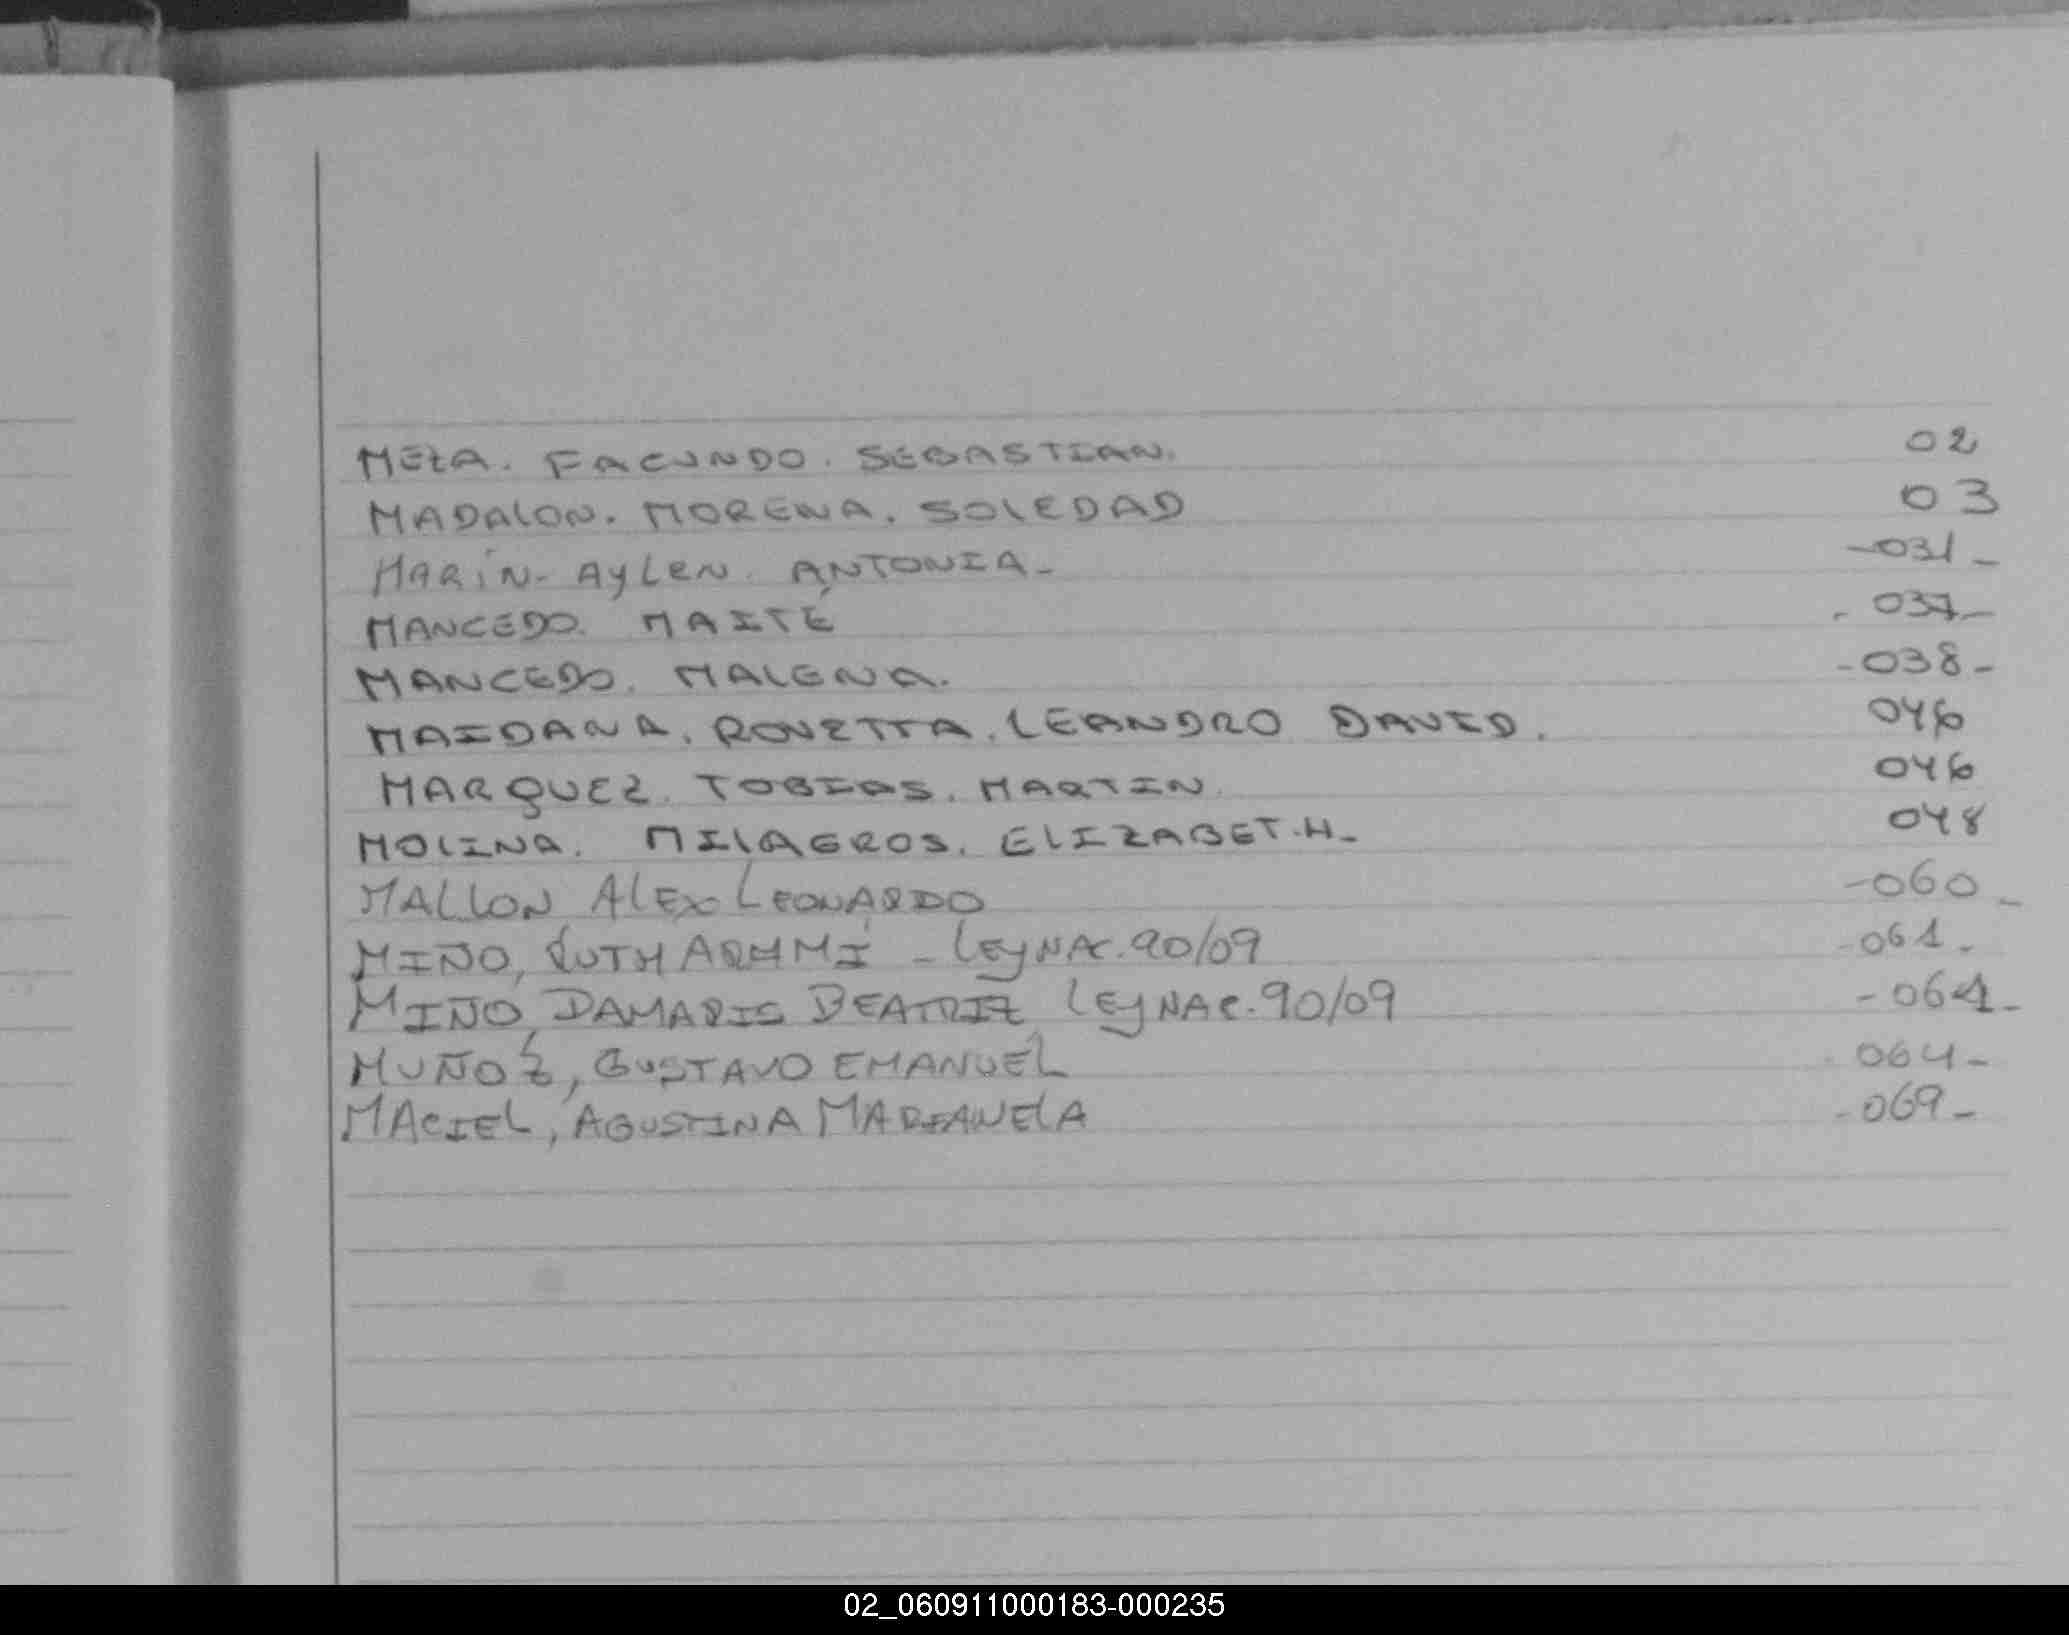 MEZA. FACUNDO. SEBASTIAN. 02
MADALON. MORENA. SOLEDAD 03
MARIN- AYLEN. ANTONIA- -031-
MANCEDO. MAITÉ - 037-
MANCEDO. MALENA. -038-
MAIDANA. ROVETTA. LEANDRO DAVID. 046
MARQUEZ. TOBIAS. MARTIN. 046
MOLINA. MILAGROS. ELIZABET.H- 048
MALLON ALEX LEONARDO -060-
MIÑO, RUTH - LEY NAC. 90/09 -061-
MIÑO, DAMARIS BEATRIZ LEY NAC. 90/09 -061-
MUÑOZ, GUSTAVO EMANUEL - 064-
MACIEL, AGUSTINA MARIANELA -069-
02_060911000183-000235